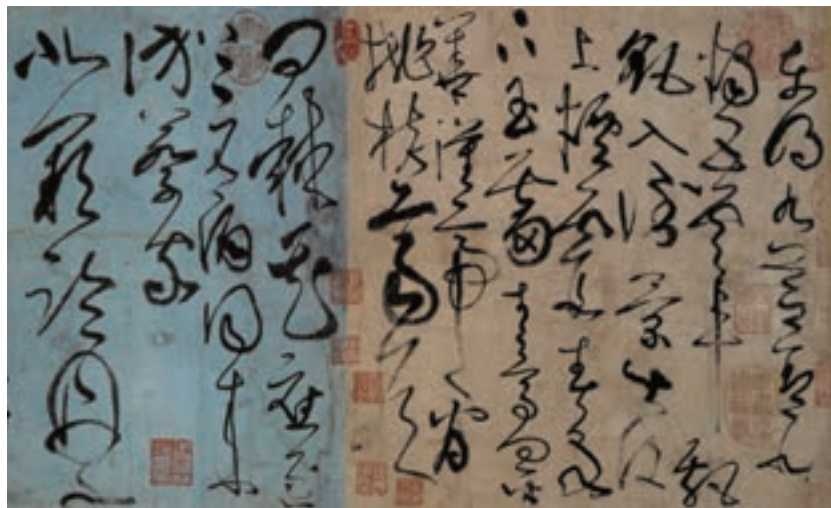 東明九芝蓋北
燭五雲車飄
飖入倒景出没
上烟霞春泉
下玉霤青鳥向金
華漢帝看
桃核齊侯
問棘花應逐
上元酒同來
訪蔡家
北闕臨丹水